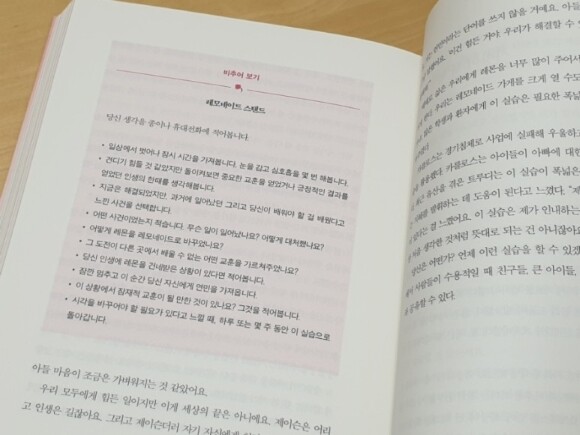 비추어 보기
레모네이드 스탠드
당신 생각을 종이나 휴대전화에 적어봅니다.
• 일상에서 벗어나 잠시 시간을 가져봅니다. 눈을 감고 심호흡을 몇 번 해봅니다.
• 견디기 힘들 것 같았지만 돌이켜보면 중요한 교훈을 얻었거나 긍정적인 결과를
얻었던 인생의 한때를 생각해봅니다.
• 지금은 해결되었지만, 과거에 일어났던 그리고 당신이 배워야 할 걸 배웠다고
느낀 사건을 선택합니다.
• 어떤 사건이었는지 적습니다. 무슨 일이 일어났나요? 어떻게 대처했나요?
• 어떻게 레몬을 레모네이드로 바꾸었나요?
• 그 도전이 다른 곳에서 배울 수 없는 어떤 교훈을 가르쳐주었나요?
• 당신 인생에 레몬을 건네받은 상황이 있다면 적어봅니다.
• 잠깐 멈추고 이 순간 당신 자신에게 연민을 가져옵니다.
• 이 상황에서 잠재적 교훈이 될 만한 것이 있나요? 그것을 적어봅니다.
• 시각을 바꾸어야 할 필요가 있다고 느낄 때, 하루 또는 몇 주 동안 이 실습으로
돌아갑니다.
아들 마음이 조금은 가벼워지는 것 같았어요.
우리 모두에게 힘든 일이지만 이게 세상의 끝은 아니에요. 제이슨은 어리
고 인생은 길잖아요. 그리고 제이슨더러 자기 자신에게
단어를 쓰지 않을 거예요. 아들
이건 힘든 거야. 우리가 해결할 수
우리에게 레몬을 너무 많이 주어서
우리는 레모네이드 가게를 크게 열 수도
학생과 환자에게 이 실습은 필요한 폭넓
경기침체로 사업에 실패해 우울하고
카를로스는 아이들이 아빠에 대한
유산을 겪은 트루디는 이 실습이 폭넓은
발휘하는 데 도움이 된다고 느꼈다. "제
걸 느꼈어요. 이 실습은 제가 안내하는
처음 생각한 것처럼 뜻대로 되는 건 아니잖아요
어떤가? 언제 이런 실습을 할 수 있겠
사람들이 수용적일 때 친구들, 큰 아이들,
응용할 수 있다.